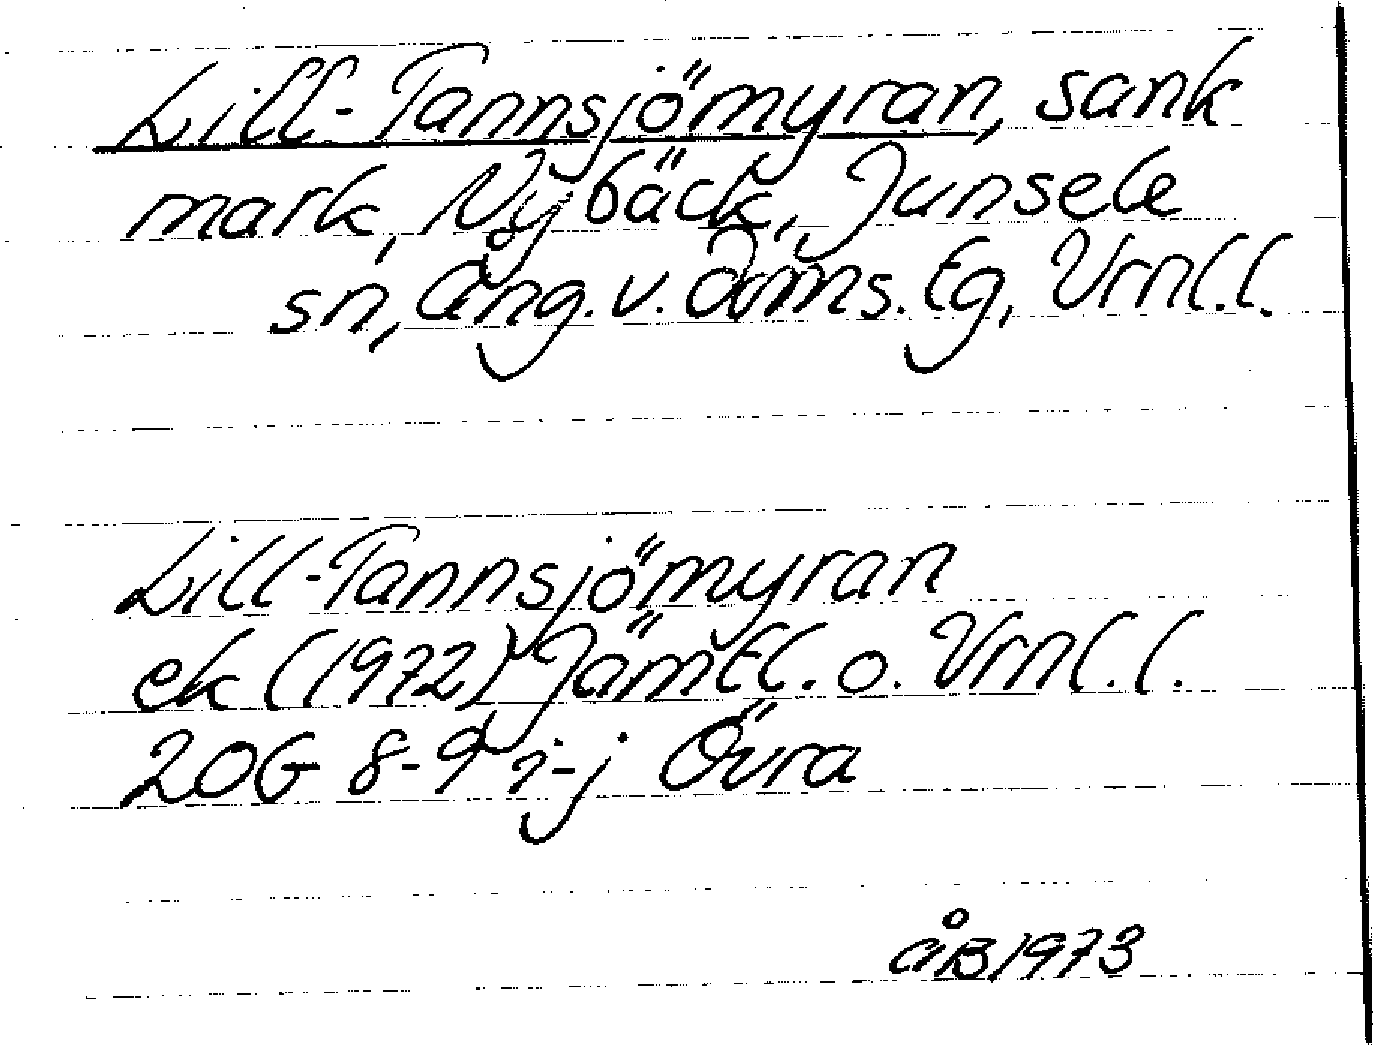 Lill-Tannsjömyran, sank
mark, Nybäck, Junsele
sn, Ång. v. doms. tg, Vrnl.l.
Lill-Tannsjömyran
ek (1972) Jämtl. o. Vrnl.l.
20G 8-9 i-j Övra
ÅB 1973